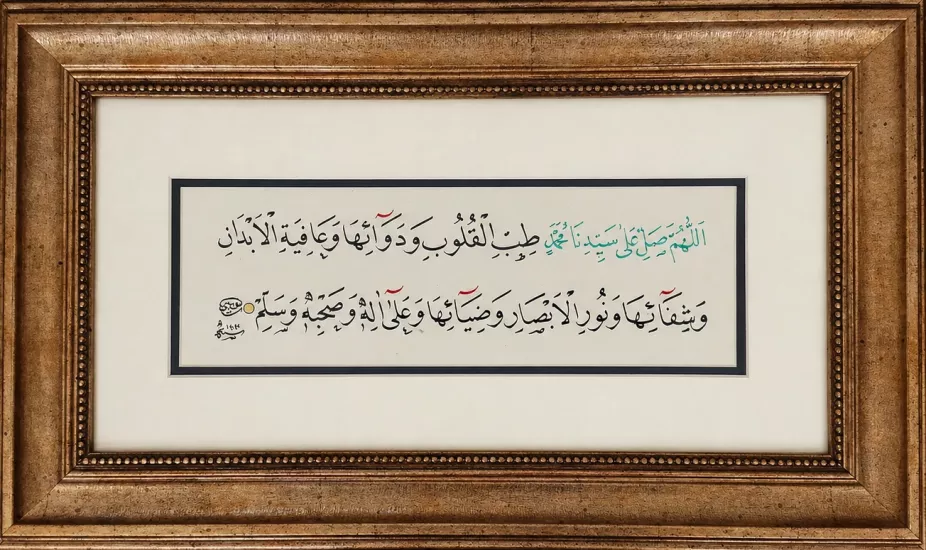 اَللّٰهُمَّ صَلِّ عَلٰى سَيِّدِنَا مُحَمَّدٍ طِبِّ الْقُلُوبِ وَدَوَآئِهَا وَعَافِيَةِ الْاَبْدَانِ
وَشِفَآئِهَا وَنُورِ الْاَبْصَارِ وَضِيَآئِهَا وَعَلٰٓى اٰلِهٖ وَصَحْبِهٖ وَسَلِّمْ